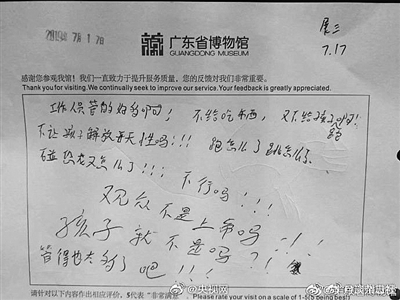 2019年7月17日
展三
7.17
广东省博物馆
GUANGDONG MUSEUM
感谢您参观我馆！我们一直致力于提升服务质量，您的反馈对我们非常重要。
Thank you for visiting.We continually seek to improve our service.Your feedback is greatly appreciated.
工作人员管的好多啊！不给吃东西，又不给孩子跑
不让孩子解放天性吗!!! 跑怎么了跳怎么了
碰恐龙又怎么了!!! 不行吗!!!
观众不是上帝吗!!!
孩子就不是吗?!!
管得也太多了吧!!!
请针对以下内容作出相应评价，5代表“非常满意
Please rate your visit on a scale of 1-5(5 being best)
@央视网